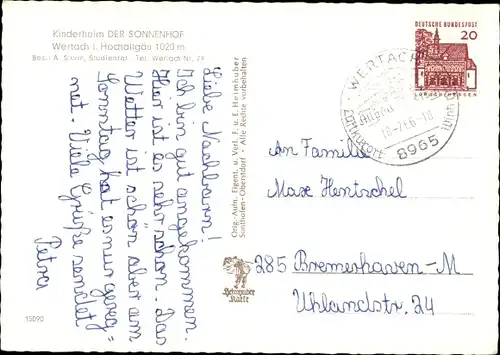 Kinderheim DER SONNENHOF
Wertach i. Hochallgäu 1020 m
Bes.: A. Sturm, Studienrat Tel. Wertach Nr. 79
Liebe Nachbarn!
Ich bin gut angekommen.
Hier ist es sehr schön. Das
Wetter ist schön aber am
Sonntag hat es nur gereg=
net. Viele Grüße sendet
Petra
Orig.-Aufn. Eigent. u. Verl. F. u. E. Heimhuber
Sonthofen-Oberstdorf - Alle Rechte vorbehalten
DEUTSCHE BUNDESPOST
20
LORSCH/HESSEN
WERTACH
Allgäu
18-7.66-18
Luftkurort
8965
An Familie
Max Hentschel
285 Bremerhaven-M
Uhlandstr. 24
Karte
15090